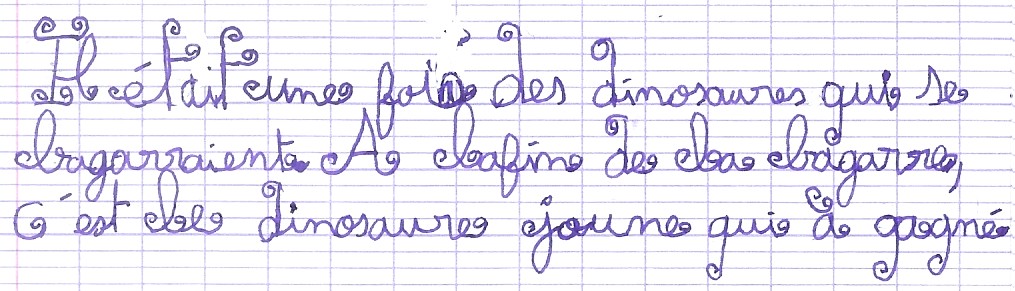 Il était eune fois des dinosaures qui se
bagarraient. A la fin de la bagarre,
c'est le dinosaure jaune qui à gagné